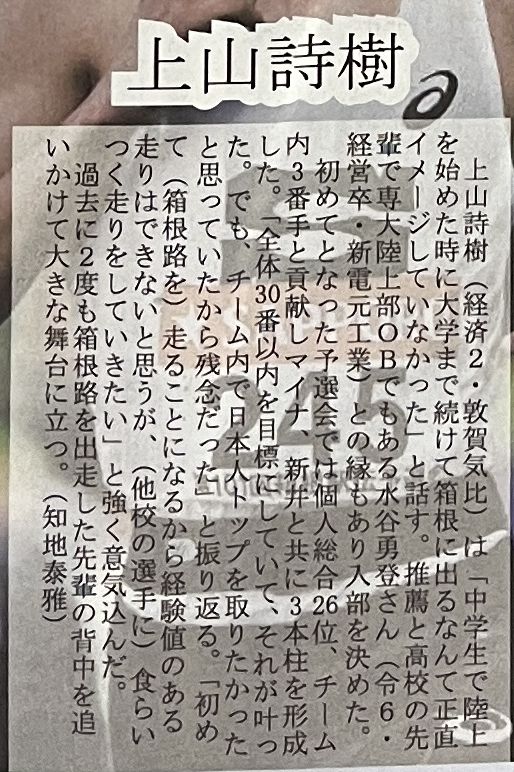 上山詩樹
上山詩樹（経済２・敦賀気比）は「中学生で陸上
を始めた時に大学まで続けて箱根に出るなんて正直
イメージしていなかった」と話す。推薦と高校の先
輩で専大陸上部ＯＢでもある水谷勇登さん（令６・
経営卒・新電元工業）との縁もあり入部を決めた。
初めてとなった予選会では個人総合26位、チーム
内３番手と貢献しマイナ、新井と共に３本柱を形成
した。「全体30番以内を目標にしていて、それが叶っ
た。でも、チーム内で日本人トップを取りたかった
と思っていたから残念だった」と振り返る。「初め
て（箱根路を）走ることになるから経験値のある
走りはできないと思うが、（他校の選手に）食らい
つく走りをしていきたい」と強く意気込んだ。
過去に２度も箱根路を出走した先輩の背中を追
いかけて大きな舞台に立つ。（知地泰雅）
245